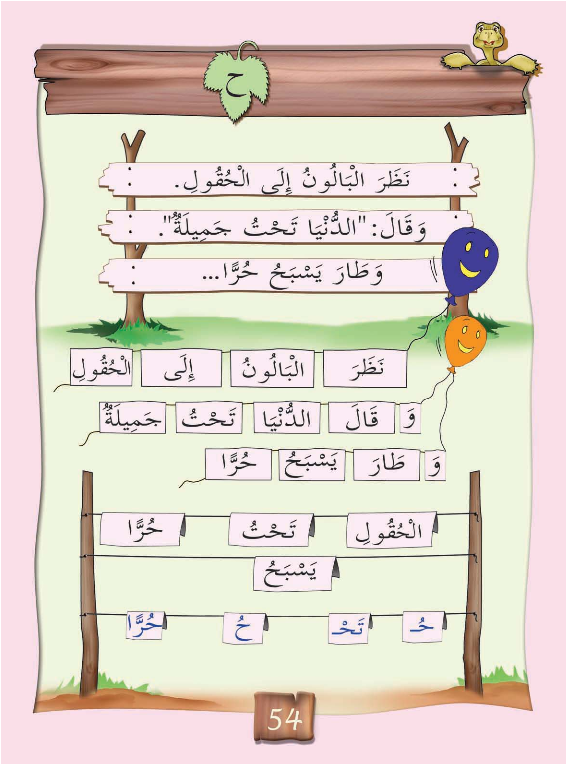 ح
نَظَرَ الْبَالُونُ إِلَى الْحُقُولِ.
وَقَالَ: "الدُّنْيَا تَحْتُ جَمِيلَةٌ".
وَطَارَ يَسْبَحُ حُرًّا...
نَظَرَ الْبَالُونُ إِلَى الْحُقُولِ
وَ قَالَ الدُّنْيَا تَحْتُ جَمِيلَةٌ
وَ طَارَ يَسْبَحُ حُرًّا
الْحُقُولِ تَحْتُ حُرًّا
يَسْبَحُ
حُـ تَحْـ حُ حُرًّا
54